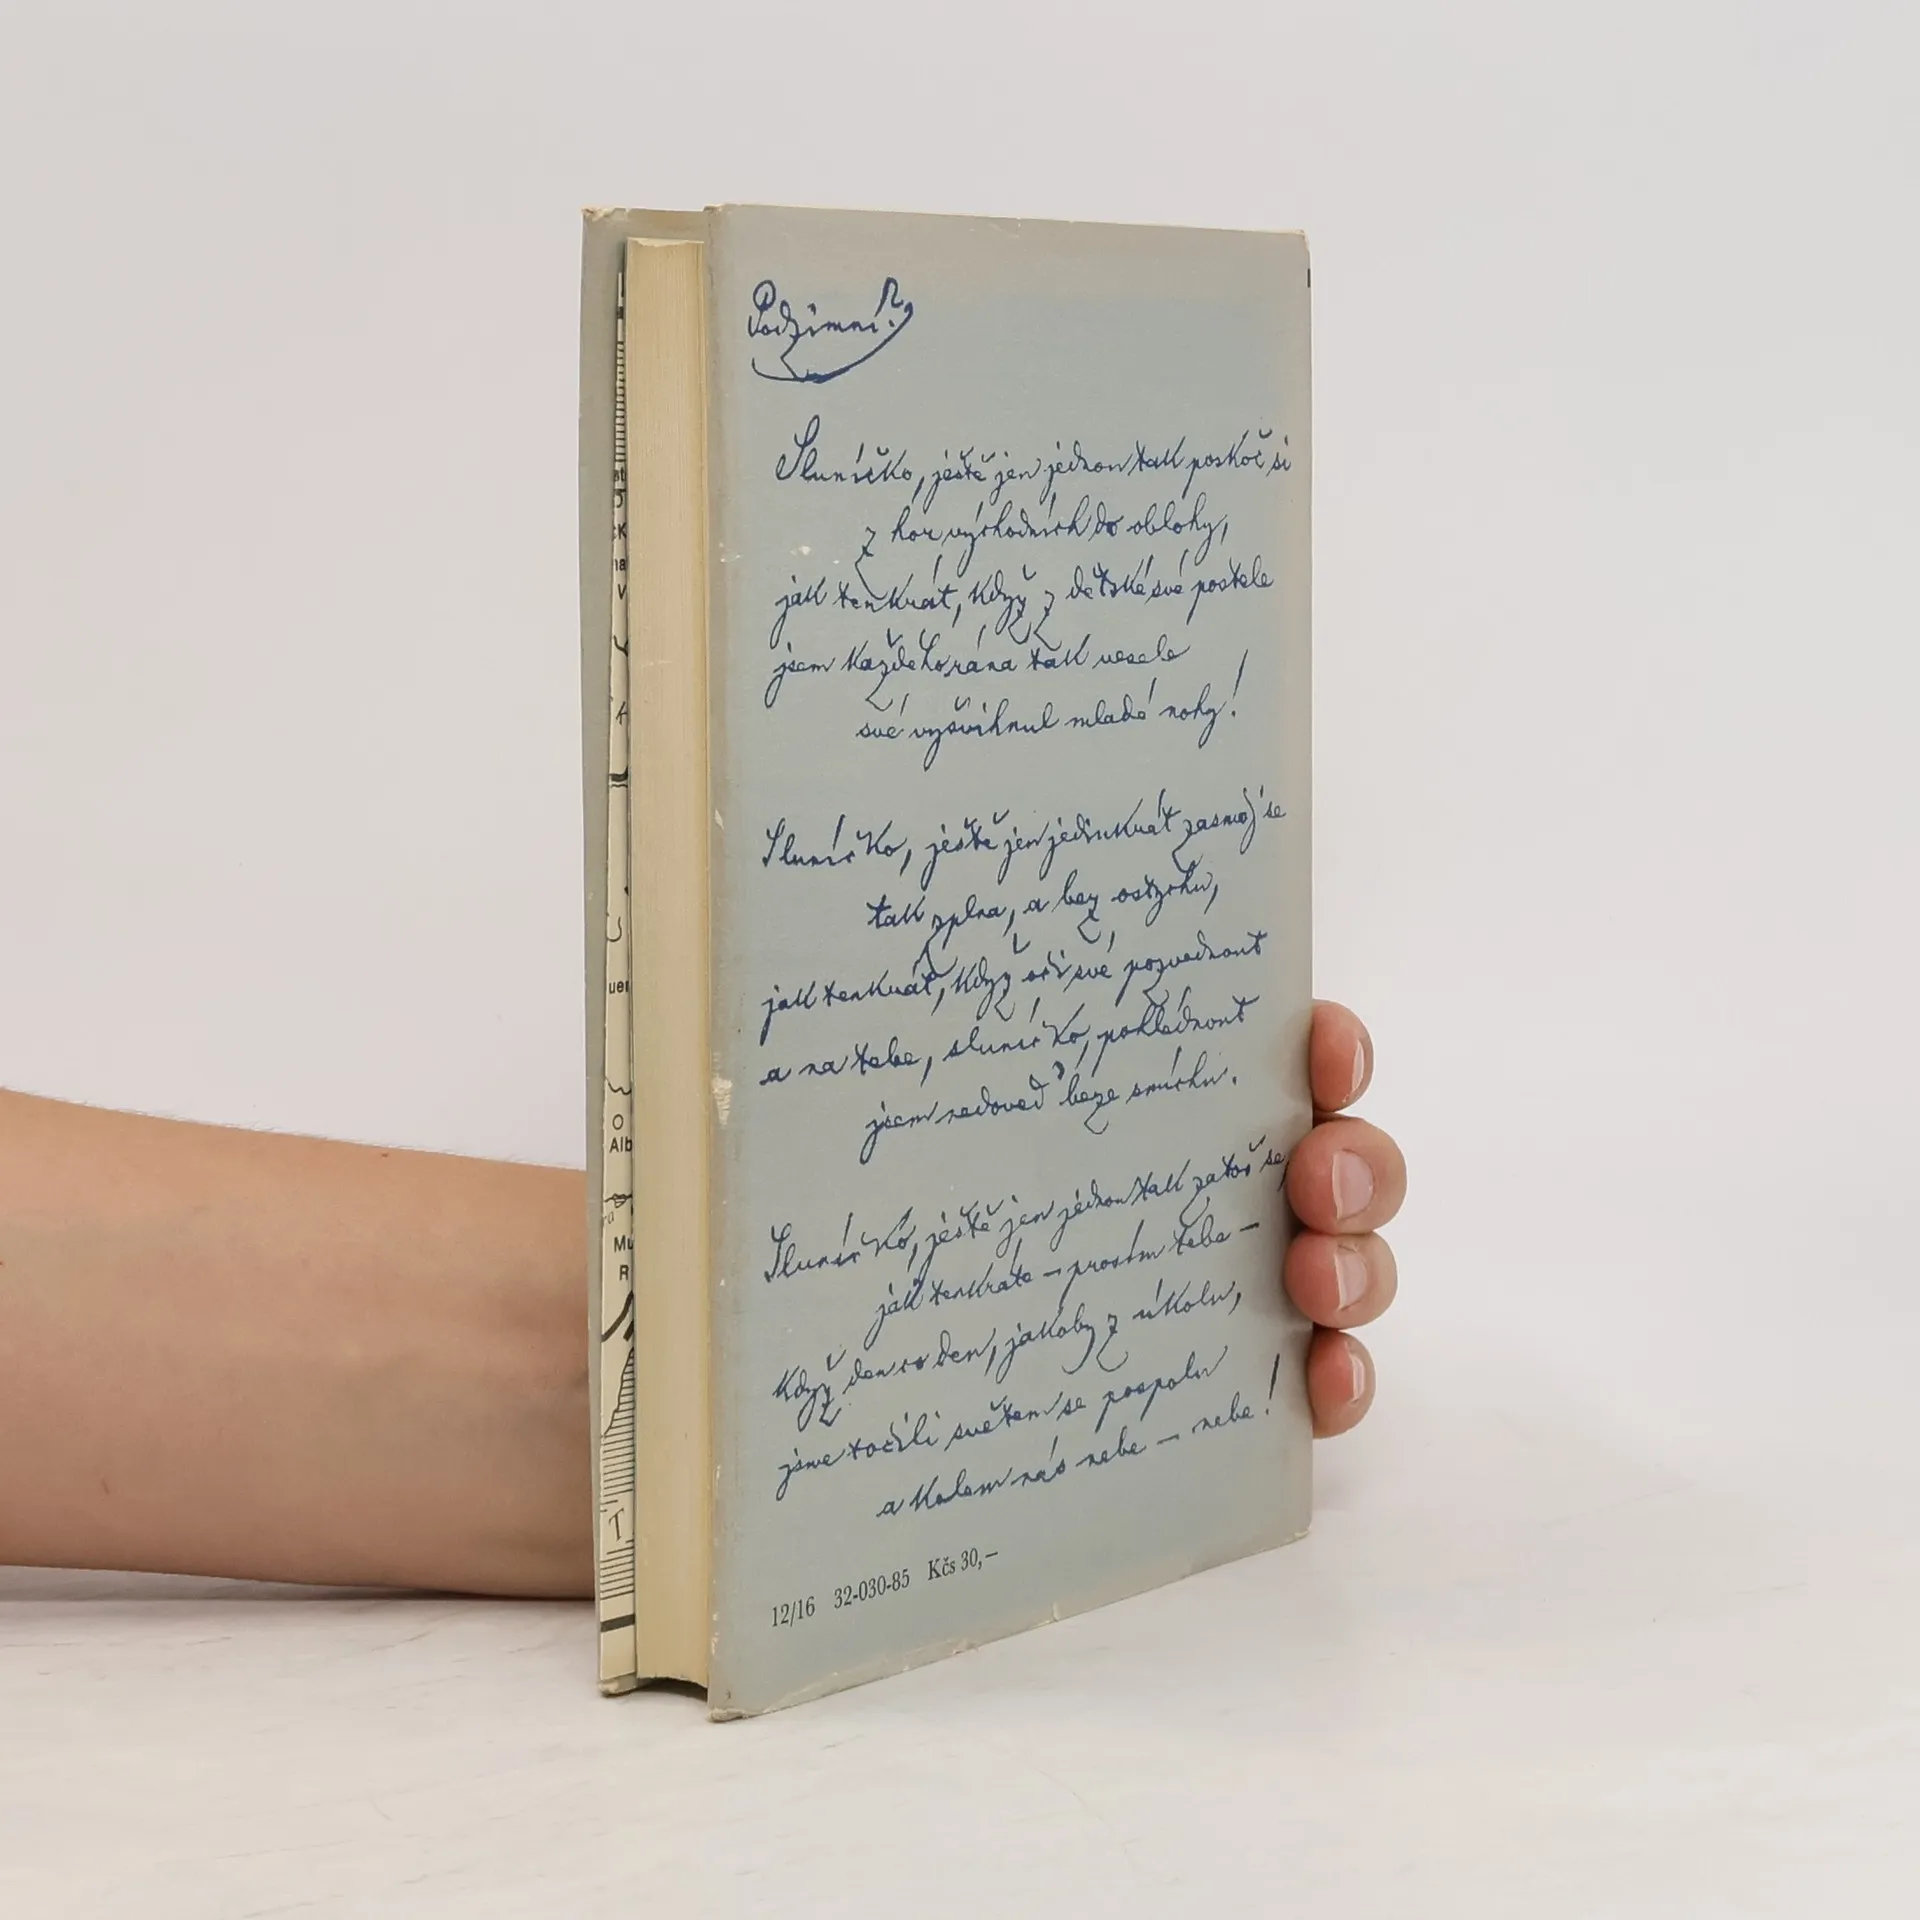 Podzimní.
Sluníčko, ještě jen jednou tak poskoč si
z hor východních do oblohy,
jak tenkrát, když z dětské své postele
jsem každého rána tak vesele
své vyšvihnul mladé nohy!
Sluníčko, ještě jen jedinkrát zasměj se
tak zplna, a bez ostychu,
jak tenkrát, když oči své pozvednout
a na tebe, sluníčko, pohlédnout
jsem nedoved' beze smíchu.
Sluníčko, ještě jen jednou tak zatoč se,
jak tenkráte – prosím tebe –
když den co den, jakoby z úkolu,
jsme točili světem se pospolu
a kolem nás nebe – nebe!
12/16 32-030-85 Kčs 30,–
uer
O
Alb
Mu
R
T